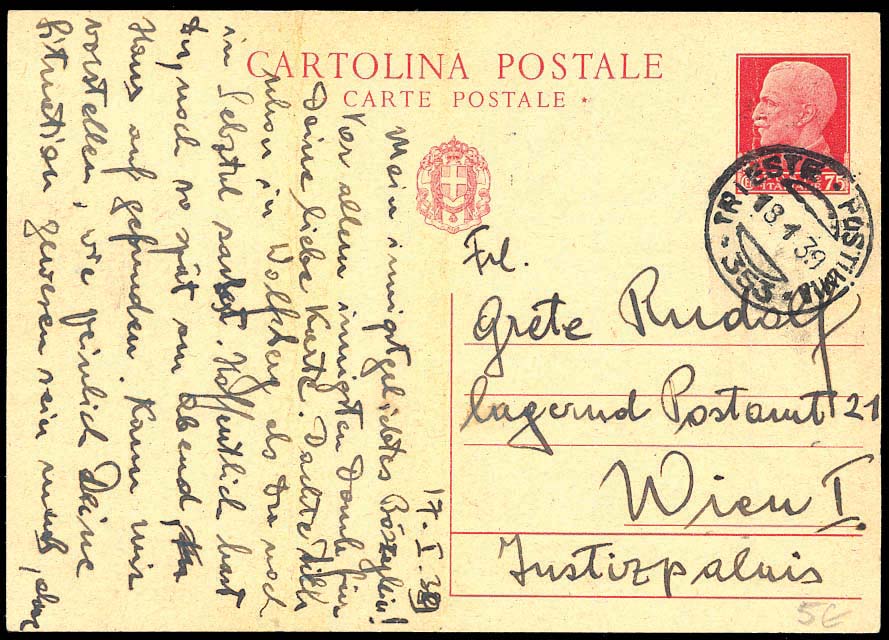 CARTOLINA POSTALE
CARTE POSTALE *
75
TRIESTE · POSTI
18. 1 39
353
Frl.
Grete Rudolf
lagernd Postamt 21
Wien I.
Justizpalais
17. I. 39
Mein innigstgeliebtes
Vor allem innigsten Dank für
Deine liebe Karte. Dachte Dich
schon in Wolfsberg als Du noch
in Selztal saßest. Hoffentlich hast
Du noch so spät am Abend
Haus auf gefunden. Kann mir
vorstellen, wie peinlich Deine
Situation gewesen sein muß, aber
5€